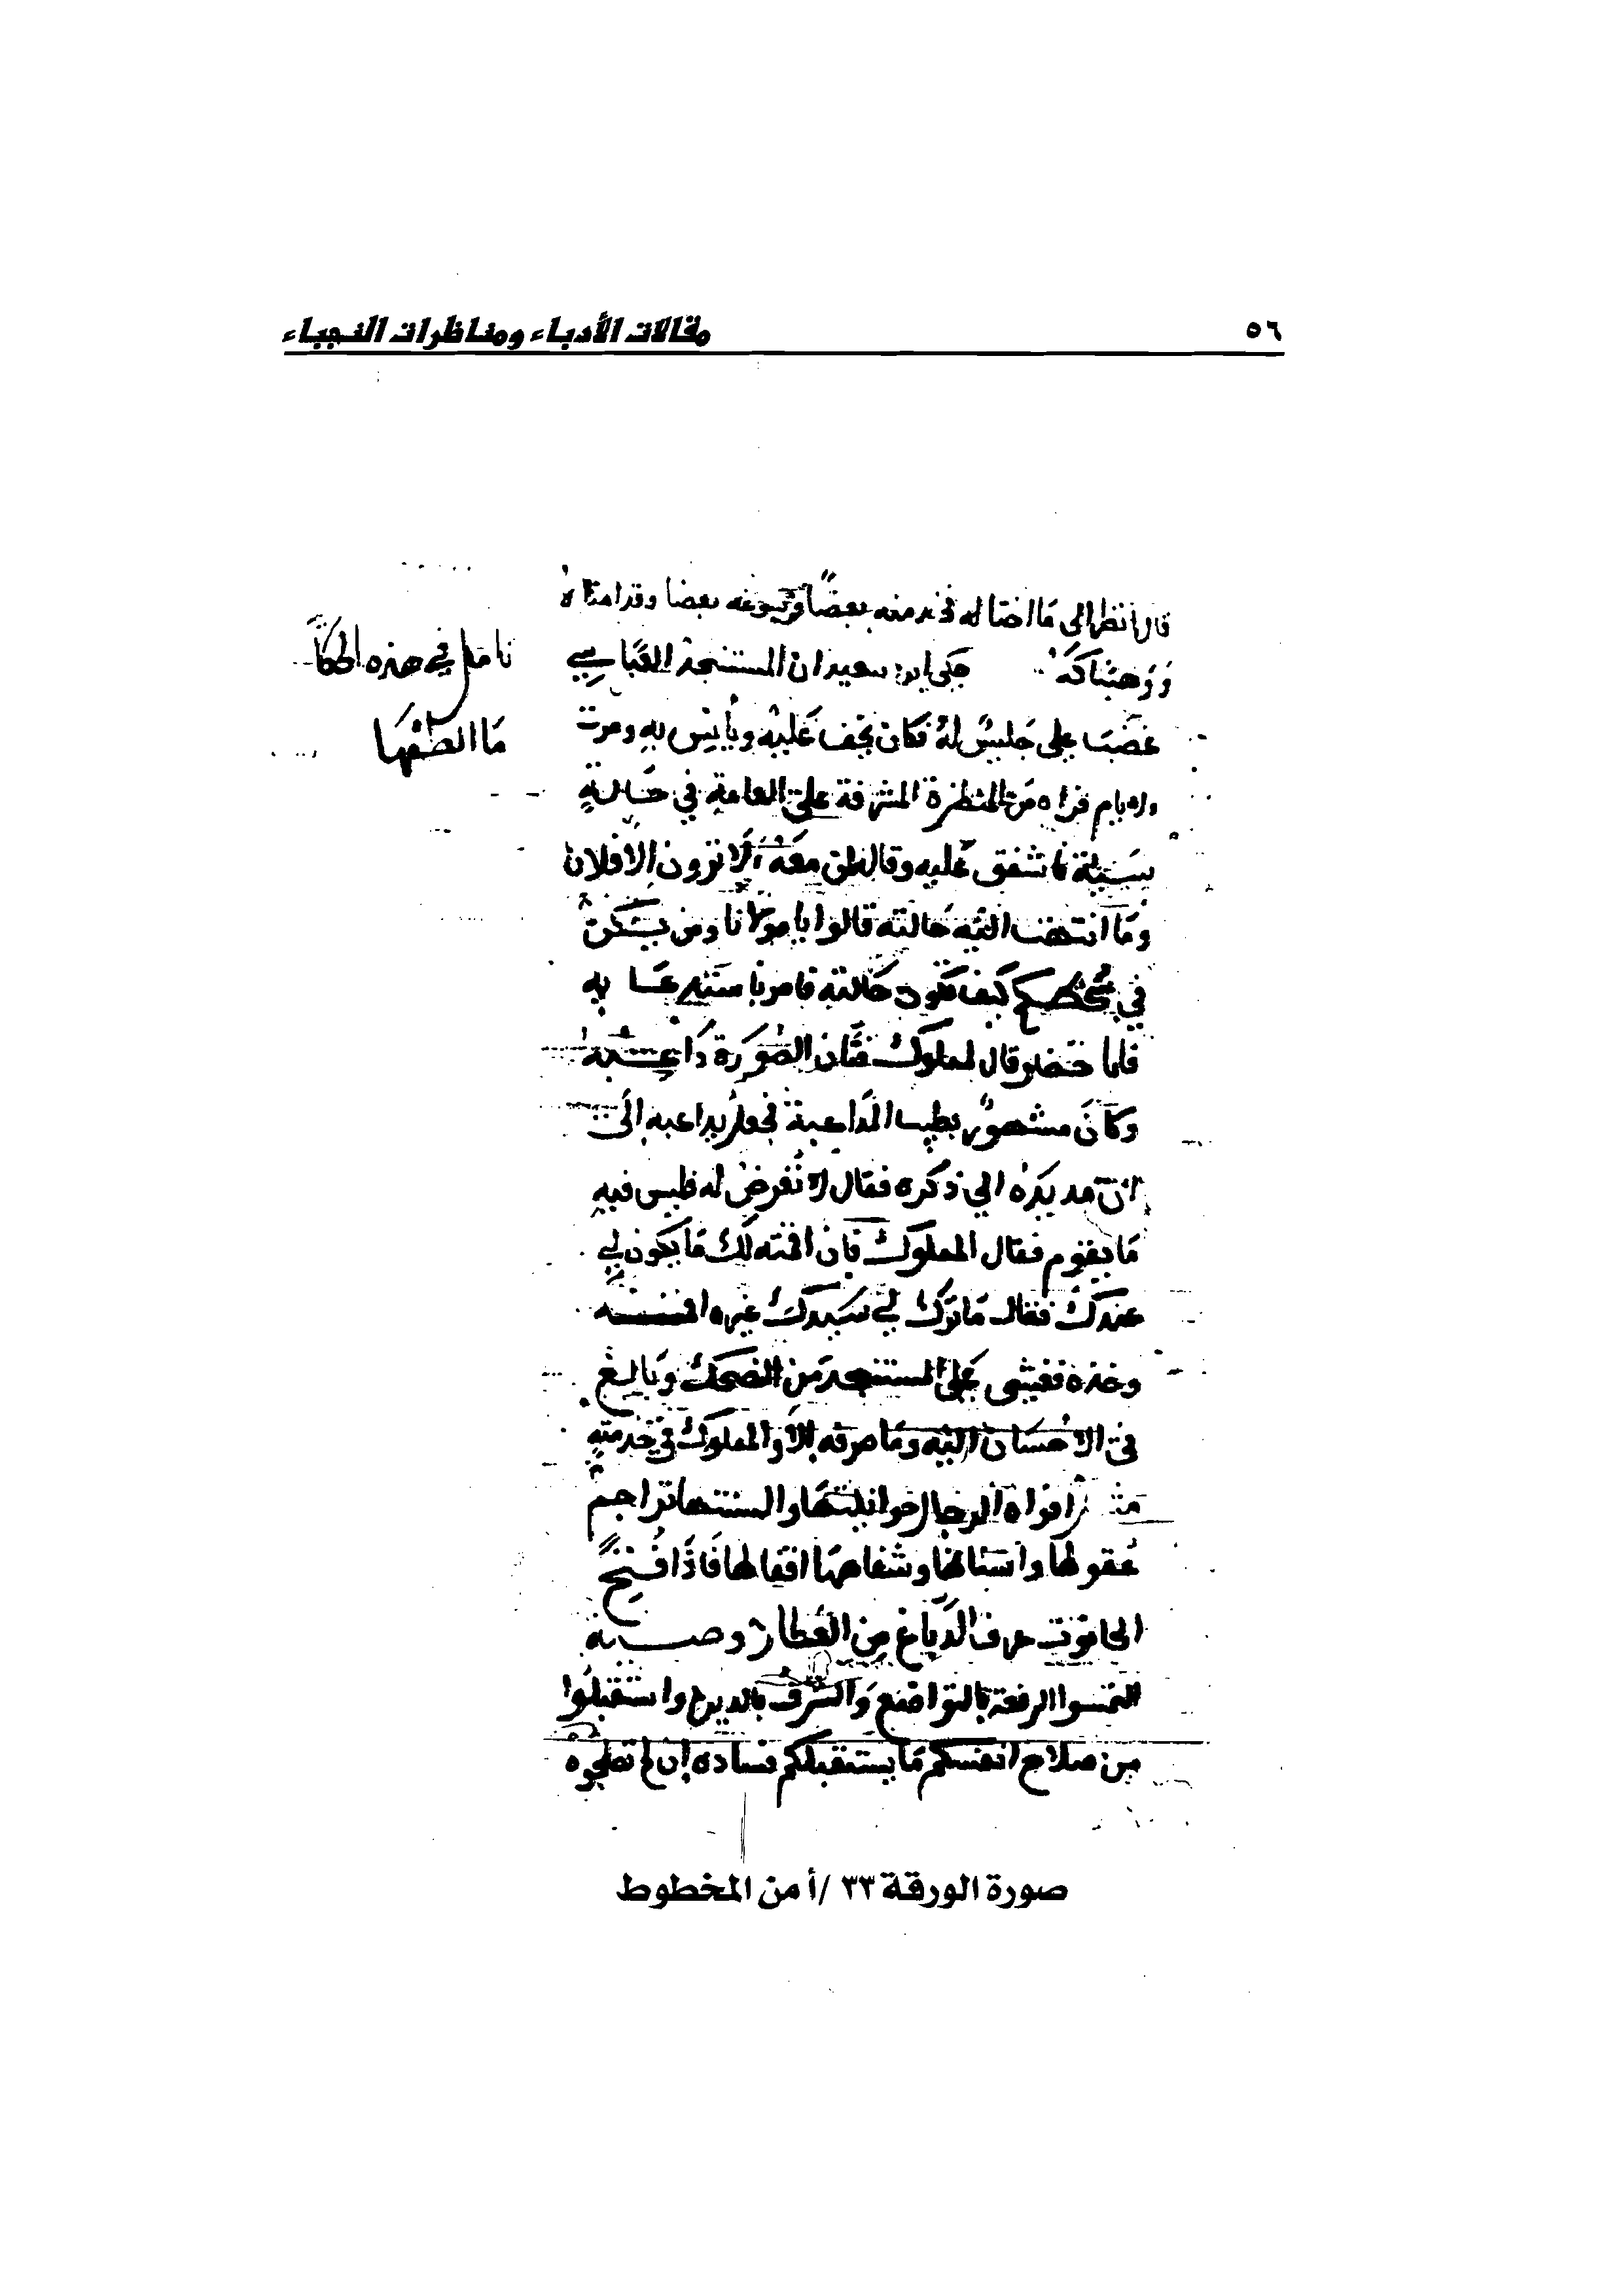 ٥٦
مقالات الأدباء ومناظرات النجباء
قال انظر الى ما اضا له فخذ منه بعضًا وبعضا وقد
ووهبناكه حكى ابن سعيد ان المستنجد العباسي
تامل في هذه الحكا
غضب على جليس له فكان يخف عليه ويأنس به ومرت
ما الطفها
الايام فراه من المنظرة المشرفة على العامة في حالة
سيئة فاشفق عليه وقال لمن معه الا ترون الا فلان
وما انتهت اليه حالته قالوا يا مولانا ومن يسكن
في سخطك كيف تكون حالته فامر باستدعا به
فلما حضر وقال لمملوك فتان الصورة داعبه
وكان مشهورٌ بطيب المداعبة فجعل يداعبه الى
ان مد يده الى ذكره فقال لا تعرض له فليس فيه
ما يقوم فقال المملوك فان اقمته لك ما يكون لي
عندك فقال ما ترك لي سيدك غيره اقمه
وخذه فغشى على المستنجد من الضحك وبالغ
في الاحسان اليه وما صرفه الا والمملوك في خدمته
افواه الرجال حوانيتها والسنتها تراجم
عقولها واسنانها وشفاهها اقفالها فاذا فتح
الحانوت عرف الدباغ من العطار وصـ ـه
التمسوا الرفعة بالتواضع والشرف بالدين واستقبلوا
من صلاح انفسكم ما يستقبلكم فساده ان لم تصلحوه
صورة الورقة ٣٣ /أ من المخطوط